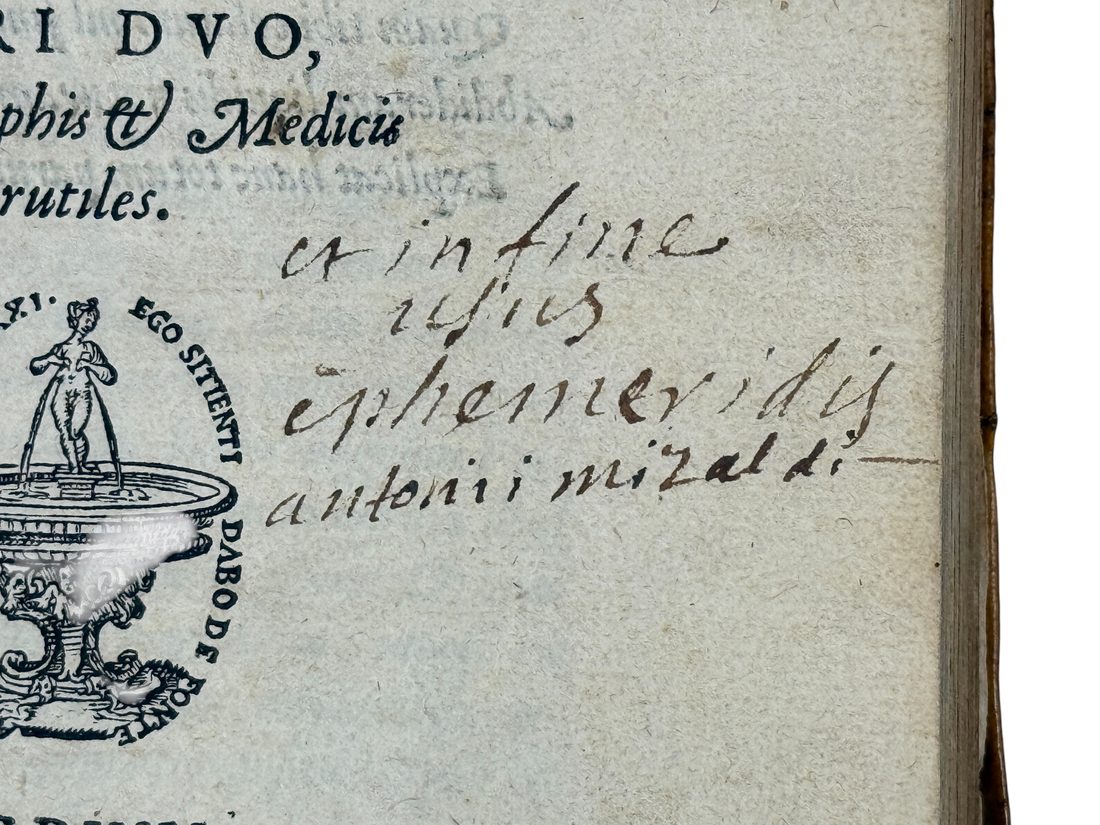 RI DVO,
phis & Medicis
rutiles.
et in fine
usus
ephemeridis
antonii mizaldi
EGO SITIENTI DABO DE FONTE